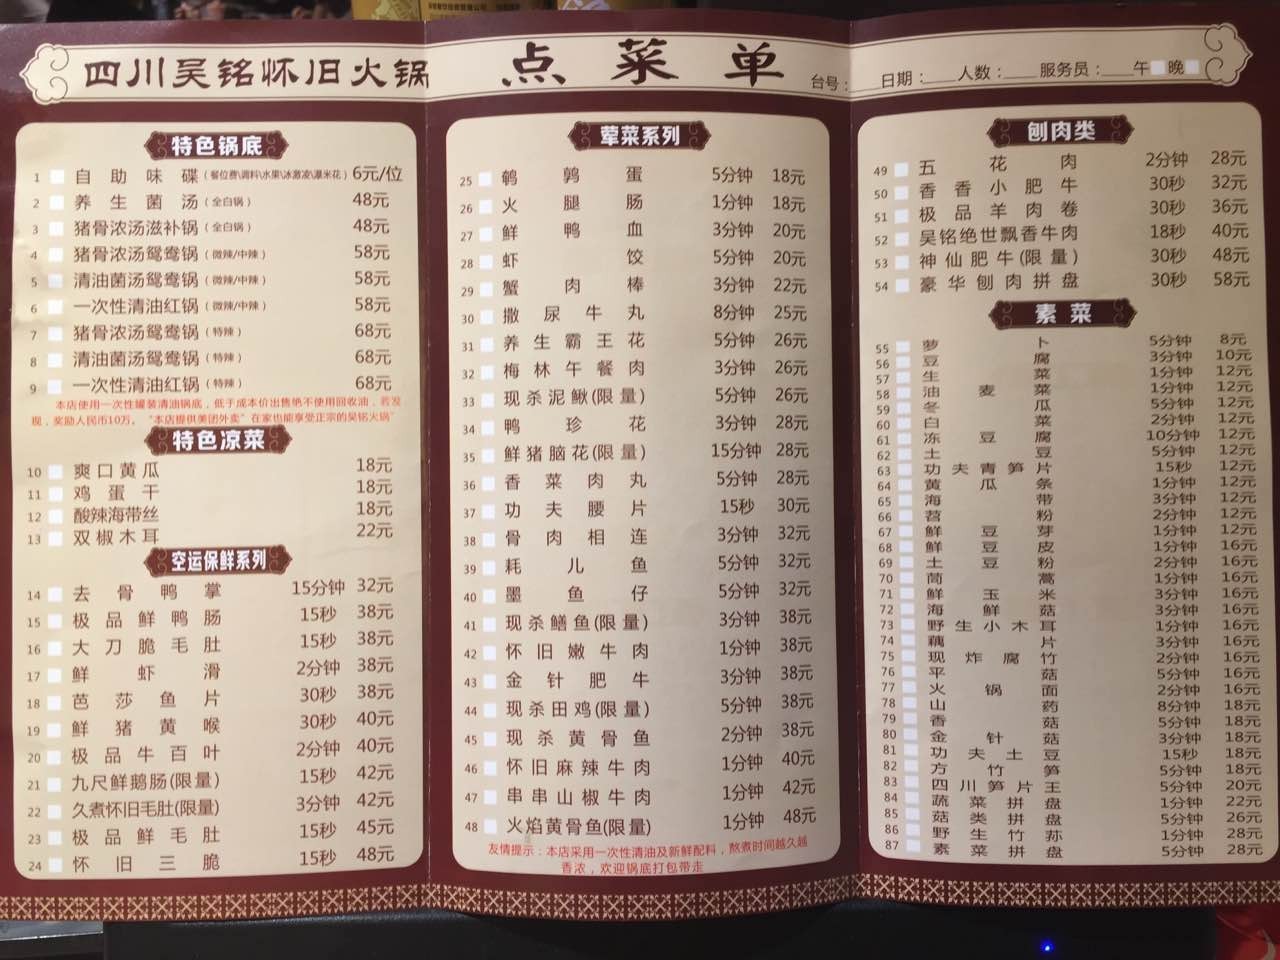 四川吴铭怀旧火锅
点菜单
台号：____日期：____人数：____服务员：____午 晚
特色锅底
1 自助味碟（餐位费\调料\水果\冰激凌\瀑米花）6元/位
2 养生菌汤（全白锅） 48元
3 猪骨浓汤滋补锅（全白锅） 48元
4 猪骨浓汤鸳鸯锅（微辣/中辣） 58元
5 清油菌汤鸳鸯锅（微辣/中辣） 58元
6 一次性清油红锅（微辣/中辣） 58元
7 猪骨浓汤鸳鸯锅（特辣） 68元
8 清油菌汤鸳鸯锅（特辣） 68元
9 一次性清油红锅（特辣） 68元
本店使用一次性罐装清油锅底，低于成本价出售绝不使用回收油，若发
现，奖励人民币10万。“本店提供美团外卖”在家也能享受正宗的吴铭火锅”
特色凉菜
10 爽口黄瓜 18元
11 鸡蛋干 18元
12 酸辣海带丝 18元
13 双椒木耳 22元
空运保鲜系列
14 去骨鸭掌 15分钟 32元
15 极品鲜鸭肠 15秒 38元
16 大刀脆毛肚 15秒 38元
17 鲜虾滑 2分钟 38元
18 芭莎鱼片 30秒 38元
19 鲜猪黄喉 30秒 40元
20 极品牛百叶 2分钟 40元
21 九尺鲜鹅肠(限量) 15秒 42元
22 久煮怀旧毛肚(限量) 3分钟 42元
23 极品鲜毛肚 15秒 45元
24 怀旧三脆 15秒 48元
荤菜系列
25 鹌鹑蛋 5分钟 18元
26 火腿肠 1分钟 18元
27 鲜鸭血 3分钟 20元
28 虾饺 5分钟 20元
29 蟹肉棒 3分钟 22元
30 撒尿牛丸 8分钟 25元
31 养生霸王花 5分钟 26元
32 梅林午餐肉 3分钟 26元
33 现杀泥鳅(限量) 5分钟 26元
34 鸭珍花 3分钟 28元
35 鲜猪脑花(限量) 15分钟 28元
36 香菜肉丸 5分钟 28元
37 功夫腰片 15秒 30元
38 骨肉相连 3分钟 32元
39 耗儿鱼 5分钟 32元
40 墨鱼仔 5分钟 32元
41 现杀鳝鱼(限量) 3分钟 38元
42 怀旧嫩牛肉 1分钟 38元
43 金针肥牛 3分钟 38元
44 现杀田鸡(限量) 5分钟 38元
45 现杀黄骨鱼 2分钟 38元
46 怀旧麻辣牛肉 1分钟 40元
47 串串山椒牛肉 1分钟 42元
48 火焰黄骨鱼(限量) 1分钟 48元
友情提示：本店采用一次性清油及新鲜配料，熬煮时间越久越
香浓，欢迎锅底打包带走
刨肉类
49 五花肉 2分钟 28元
50 香香小肥牛 30秒 32元
51 极品羊肉卷 30秒 36元
52 吴铭绝世飘香牛肉 18秒 40元
53 神仙肥牛(限量) 30秒 48元
54 豪华刨肉拼盘 30秒 58元
素菜
55 萝卜 5分钟 8元
56 豆腐 3分钟 10元
57 生菜 1分钟 12元
58 油麦菜 1分钟 12元
59 冬瓜 5分钟 12元
60 白菜 2分钟 12元
61 冻豆腐 10分钟 12元
62 土豆 5分钟 12元
63 功夫青笋片 15秒 12元
64 黄瓜条 1分钟 12元
65 海带 3分钟 12元
66 苕粉 2分钟 12元
67 鲜豆芽 1分钟 12元
68 鲜豆皮 1分钟 16元
69 土豆粉 2分钟 16元
70 茼蒿 1分钟 16元
71 鲜玉米 3分钟 16元
72 海鲜菇 3分钟 16元
73 野生小木耳 1分钟 16元
74 藕片 3分钟 16元
75 现炸腐竹 2分钟 16元
76 平菇 5分钟 16元
77 火锅面 2分钟 16元
78 山药 8分钟 18元
79 香菇 5分钟 18元
80 金针菇 3分钟 18元
81 功夫土豆 15秒 18元
82 方竹笋 5分钟 18元
83 四川笋片王 5分钟 20元
84 蔬菜拼盘 1分钟 22元
85 菇类拼盘 5分钟 26元
86 野生竹荪 1分钟 28元
87 素菜拼盘 5分钟 28元